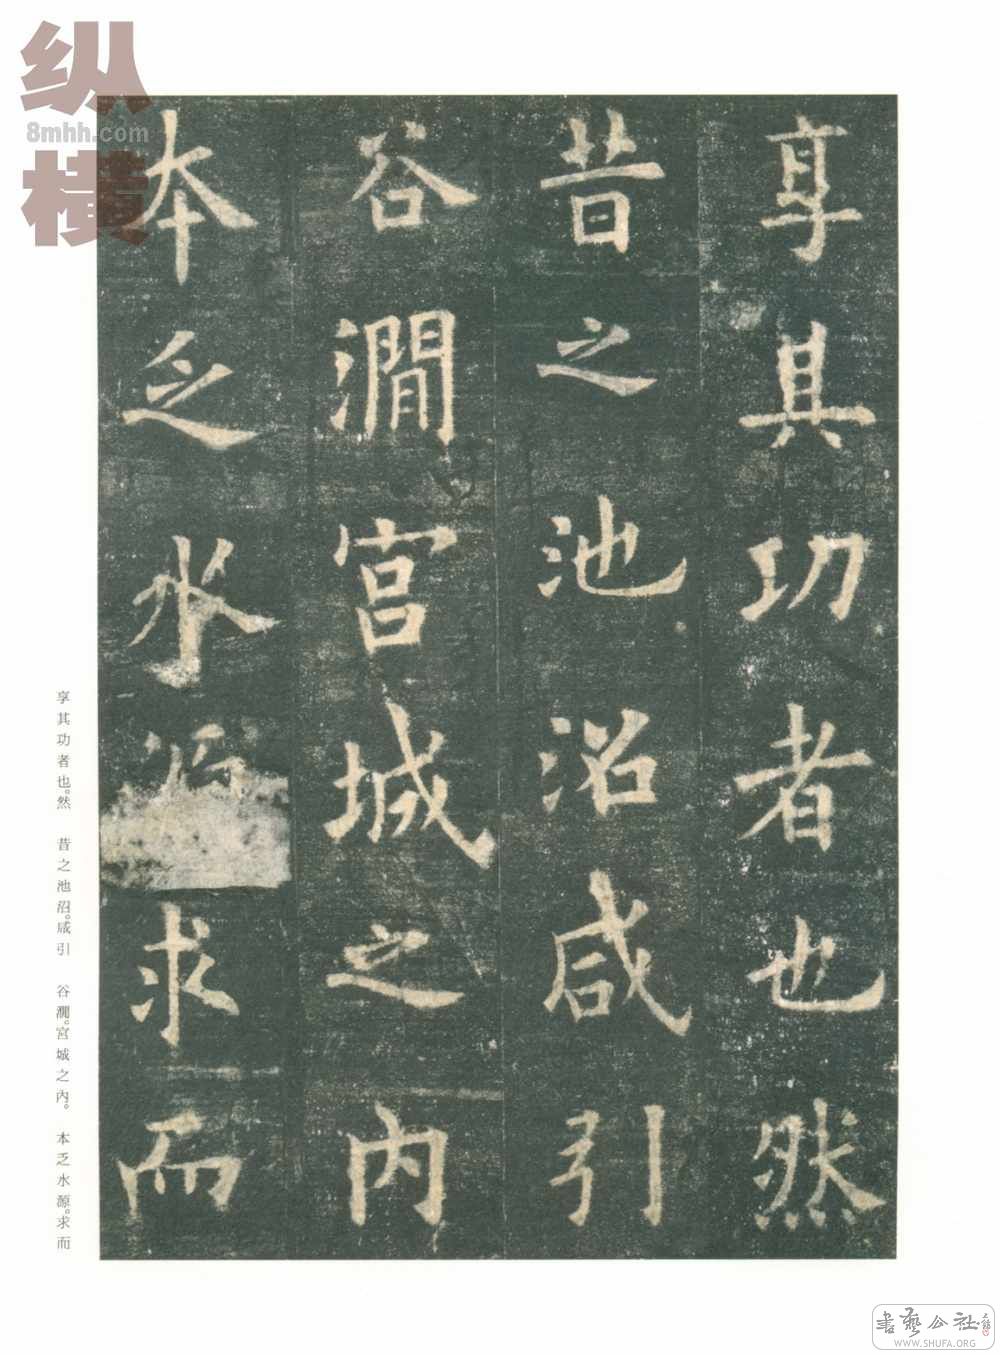 享其功者也然
昔之池沼咸引
谷澗宮城之內
本乏水源求而
享其功者也。然 昔之池沼。咸引 谷澗。宮城之內。 本乏水源。求而
纵横
8mhh.com
書藝公社
WWW.SHUFA.ORG